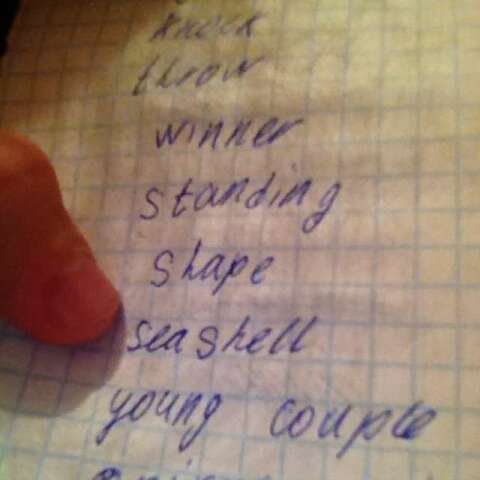 knock
throw
winner
standing
shape
seashell
young couple